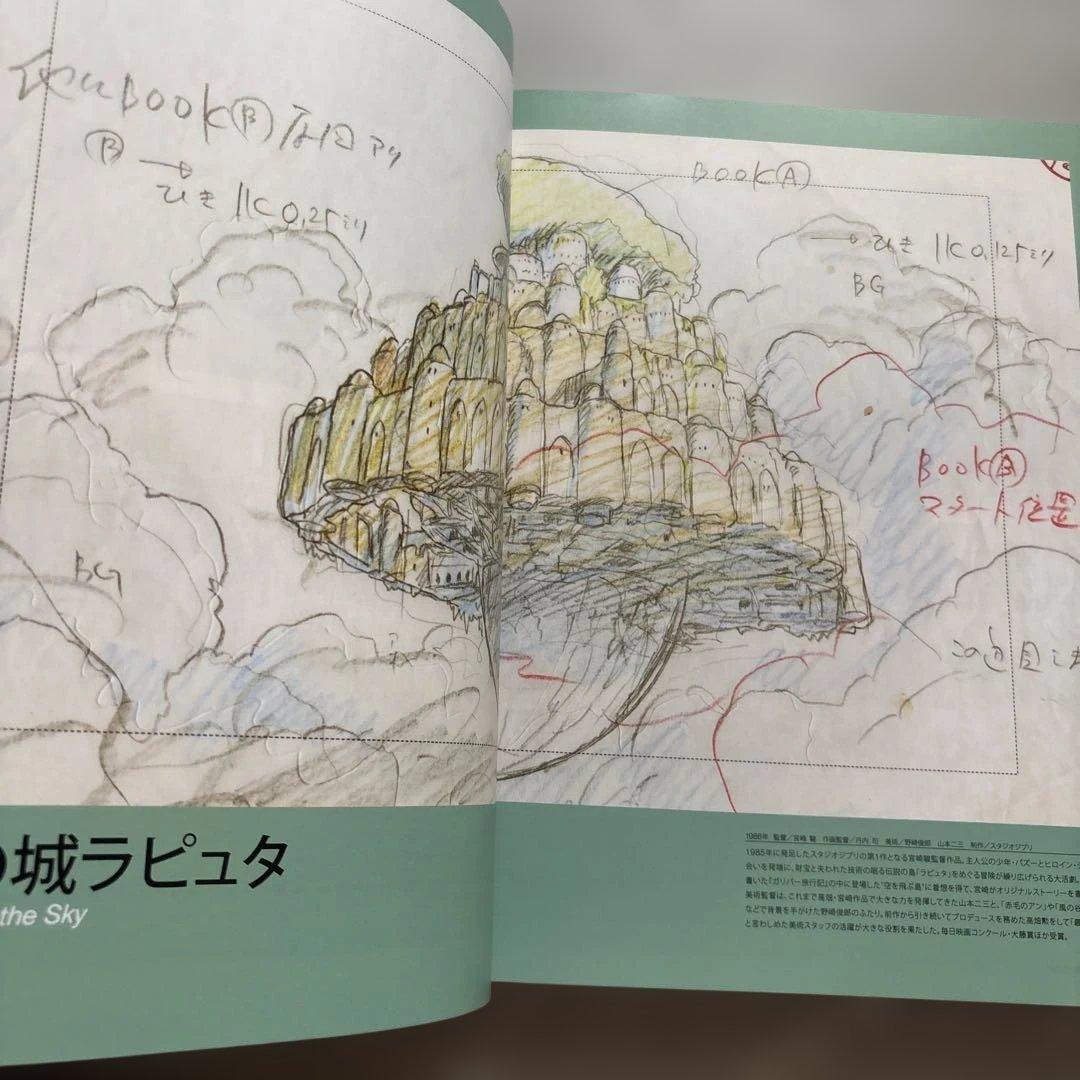 他にBOOKⒷ原図アリ
Ⓑ→
ひき 1K 0.25ミリ
BG
BOOKⒶ
→ひき 1K 0.125ミリ
BG
BOOKⒷ
スタート位置
の城ラピュタ
the Sky
1986年 監督／宮崎 駿 作画監督／丹内 司 美術／野崎俊郎 山本二三 制作／スタジオジブリ
1985年に発足したスタジオジブリの第1作となる宮崎駿監督作品。主人公の少年・パズーとヒロイン・
会いを発端に、財宝と失われた技術の眠る伝説の島「ラピュタ」をめぐる冒険が繰り広げられる大活劇。
書いた『ガリバー旅行記』の中に登場した"空を飛ぶ島"に着想を得て、宮崎がオリジナルストーリーを書
美術監督は、これまで高畑・宮崎作品で大きな力を発揮してきた山本二三と、「赤毛のアン」や「風の谷
などで背景を手がけた野崎俊郎のふたり。前作から引き続いてプロデュースを務めた高畑勲をして「最
と言わしめた美術スタッフの活躍が大きな役割を果たした。毎日映画コンクール・大藤賞ほか受賞。